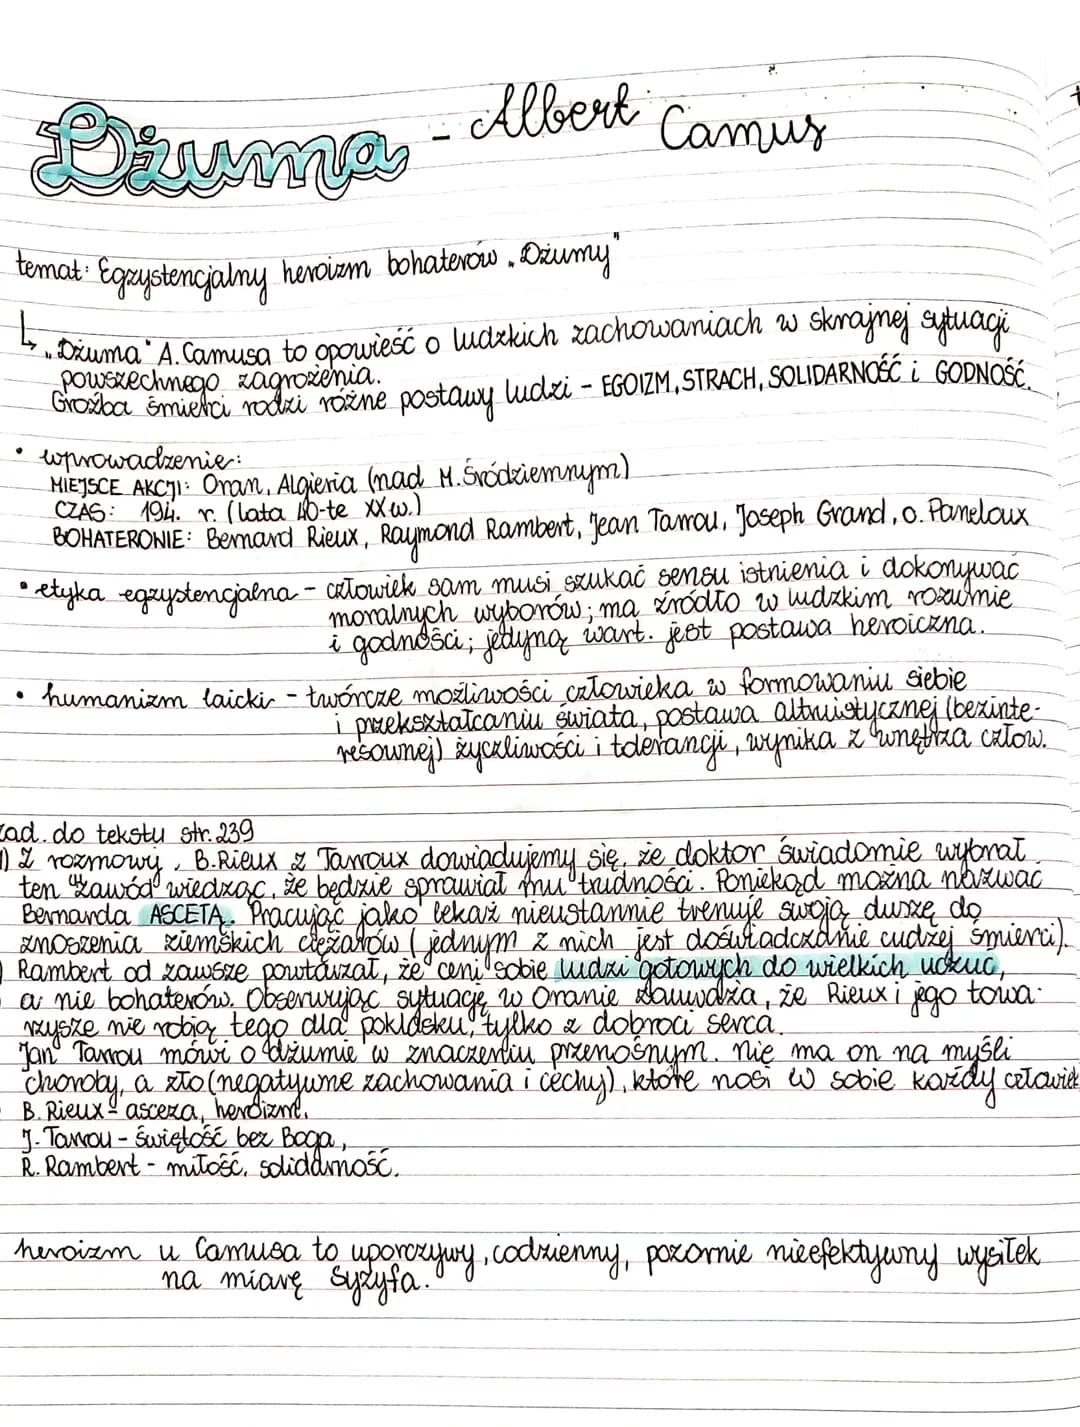 Dżuma - Albert Camus
temat: Egzystencjalny heroizm bohaterów „Dżumy"
↳ „Dżuma" A. Camusa to opowieść o ludzkich zachowaniach w skrajnej sytuacji
powszechnego zagrożenia.
Groźba śmierci rodzi różne postawy ludzi - EGOIZM, STRACH, SOLIDARNOŚĆ i GODNOŚĆ.
• wprowadzenie:
MIEJSCE AKCJI: Oran, Algieria (nad M. Śródziemnym)
CZAS: 194. r. (lata 40-te XX w.)
BOHATEROWIE: Bernard Rieux, Raymond Rambert, Jean Tarrou, Joseph Grand, o. Paneloux
• etyka egzystencjalna - człowiek sam musi szukać sensu istnienia i dokonywać
moralnych wyborów; ma źródło w ludzkim rozumie
i godności; jedyną wart. jest postawa heroiczna.
• humanizm laicki - twórcze możliwości człowieka w formowaniu siebie
i przekształcaniu świata, postawa altruistycznej (bezinte-
resownej) życzliwości i tolerancji, wynika z wnętrza człow.
zad. do tekstu str. 239
1) Z rozmowy, B. Rieux z Tarroux dowiadujemy się, że doktor świadomie wybrał
ten zawód wiedząc, że będzie sprawiał mu trudności. Poniekąd można nazwać
Bernarda ASCETĄ. Pracując jako lekaż nieustannie trenuje swoją duszę do
znoszenia ziemskich ciężarów (jednym z nich jest doświadczanie cudzej śmierci).
) Rambert od zawsze powtarzał, że ceni sobie ludzi gotowych do wielkich uczuć,
a nie bohaterów. Obserwując sytuację w Oranie zauważa, że Rieux i jego towa-
rzysze nie robią tego dla poklasku, tylko z dobroci serca.
Jan Tarrou mówi o dżumie w znaczeniu przenośnym. nie ma on na myśli
choroby, a zło (negatywne zachowania i cechy), które nosi w sobie każdy człowiek
B. Rieux - asceza, heroizm,
J. Tarrou - świętość bez Boga,
R. Rambert - miłość, solidarność.
heroizm u Camusa to uporczywy, codzienny, pozornie nieefektywny wysiłek
na miarę Syzyfa.